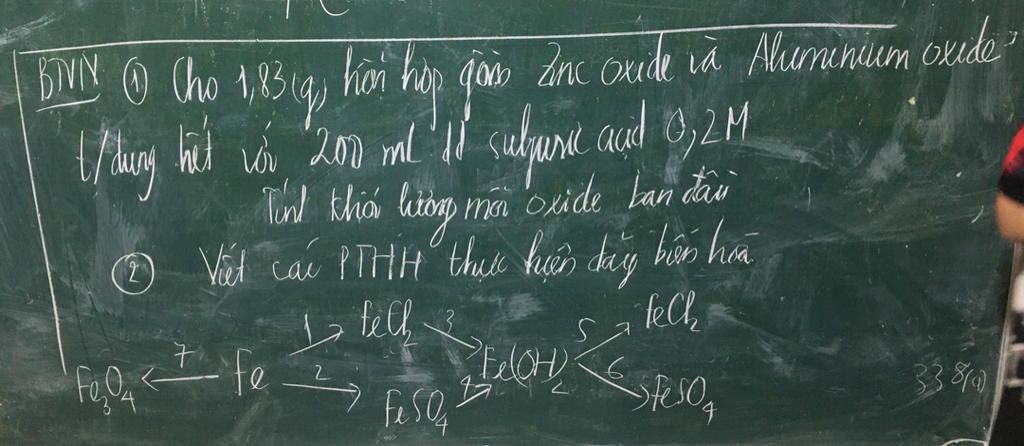 BTVN ① Cho 1,83(g) hỗn hợp gồm Zinc oxide và Aluminium oxide
t/dụng hết với 200 ml dd sulfuric acid 0,2M
Tính khối lượng mỗi oxide ban đầu
② Viết các PTHH thực hiện dãy biến hoá
1 FeCl2 3 5 FeCl2
Fe3O4 7 Fe 2 Fe(OH)2 6
FeSO4 4 FeSO4
338(a)